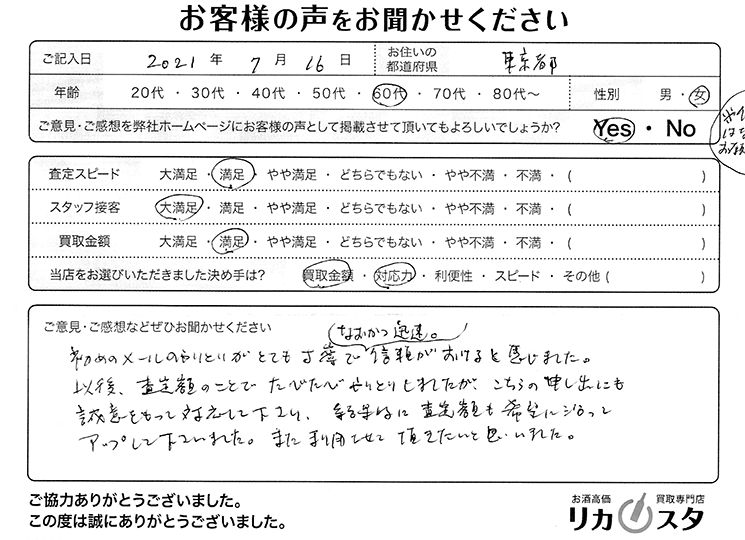 お客様の声をお聞かせください
ご記入日 2021 年 7 月 16 日 お住いの都道府県 東京都
年齢 20代 ・ 30代 ・ 40代 ・ 50代 ・ 60代 ・ 70代 ・ 80代～ 性別 男 ・ 女
ご意見・ご感想を弊社ホームページにお客様の声として掲載させて頂いてもよろしいでしょうか? Yes ・ No
査定スピード 大満足 ・ 満足 ・ やや満足 ・ どちらでもない ・ やや不満 ・ 不満 ・ ( )
スタッフ接客 大満足 ・ 満足 ・ やや満足 ・ どちらでもない ・ やや不満 ・ 不満 ・ ( )
買取金額 大満足 ・ 満足 ・ やや満足 ・ どちらでもない ・ やや不満 ・ 不満 ・ ( )
当店をお選びいただきました決め手は? 買取金額 ・ 対応力 ・ 利便性 ・ スピード ・ その他 ( )
ご意見・ご感想などぜひお聞かせください
なおかつ迅速。
初めのメールのやりとりがとても丁寧で信頼がおけると感じました。
以後、査定額のことでたびたびやりとりしましたがこちらの申し出にも
誠意をもって対応して下さり、結果的に査定額も希望に沿って
アップして下さいました。また利用させて頂きたいと思いました。
ご協力ありがとうございました。
この度は誠にありがとうございました。
お酒高価 買取専門店
リカスタ